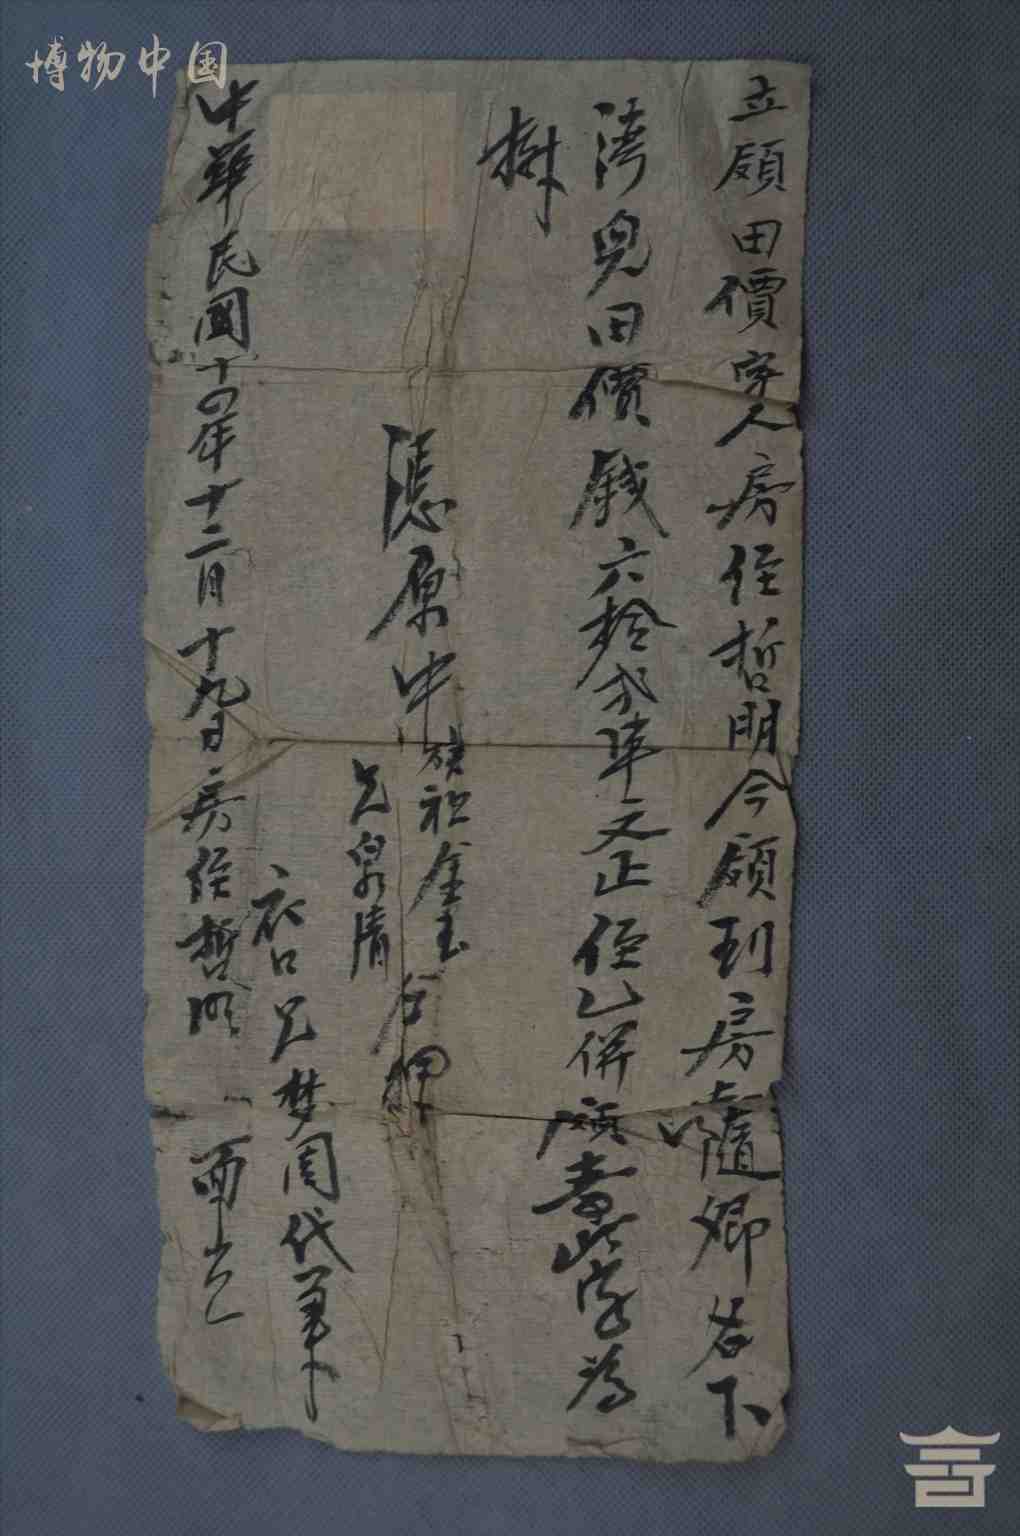 博物中国
立領田價字人房侄哲明今領到房䘵隨卿名下
湾兒田價錢六拾弍串文正侄已併領書此字為
樹
憑原中 祖金玉
兄泉清 仝押
衣口兄梦周代筆
中華民國十四年十二月十九日房侄哲明